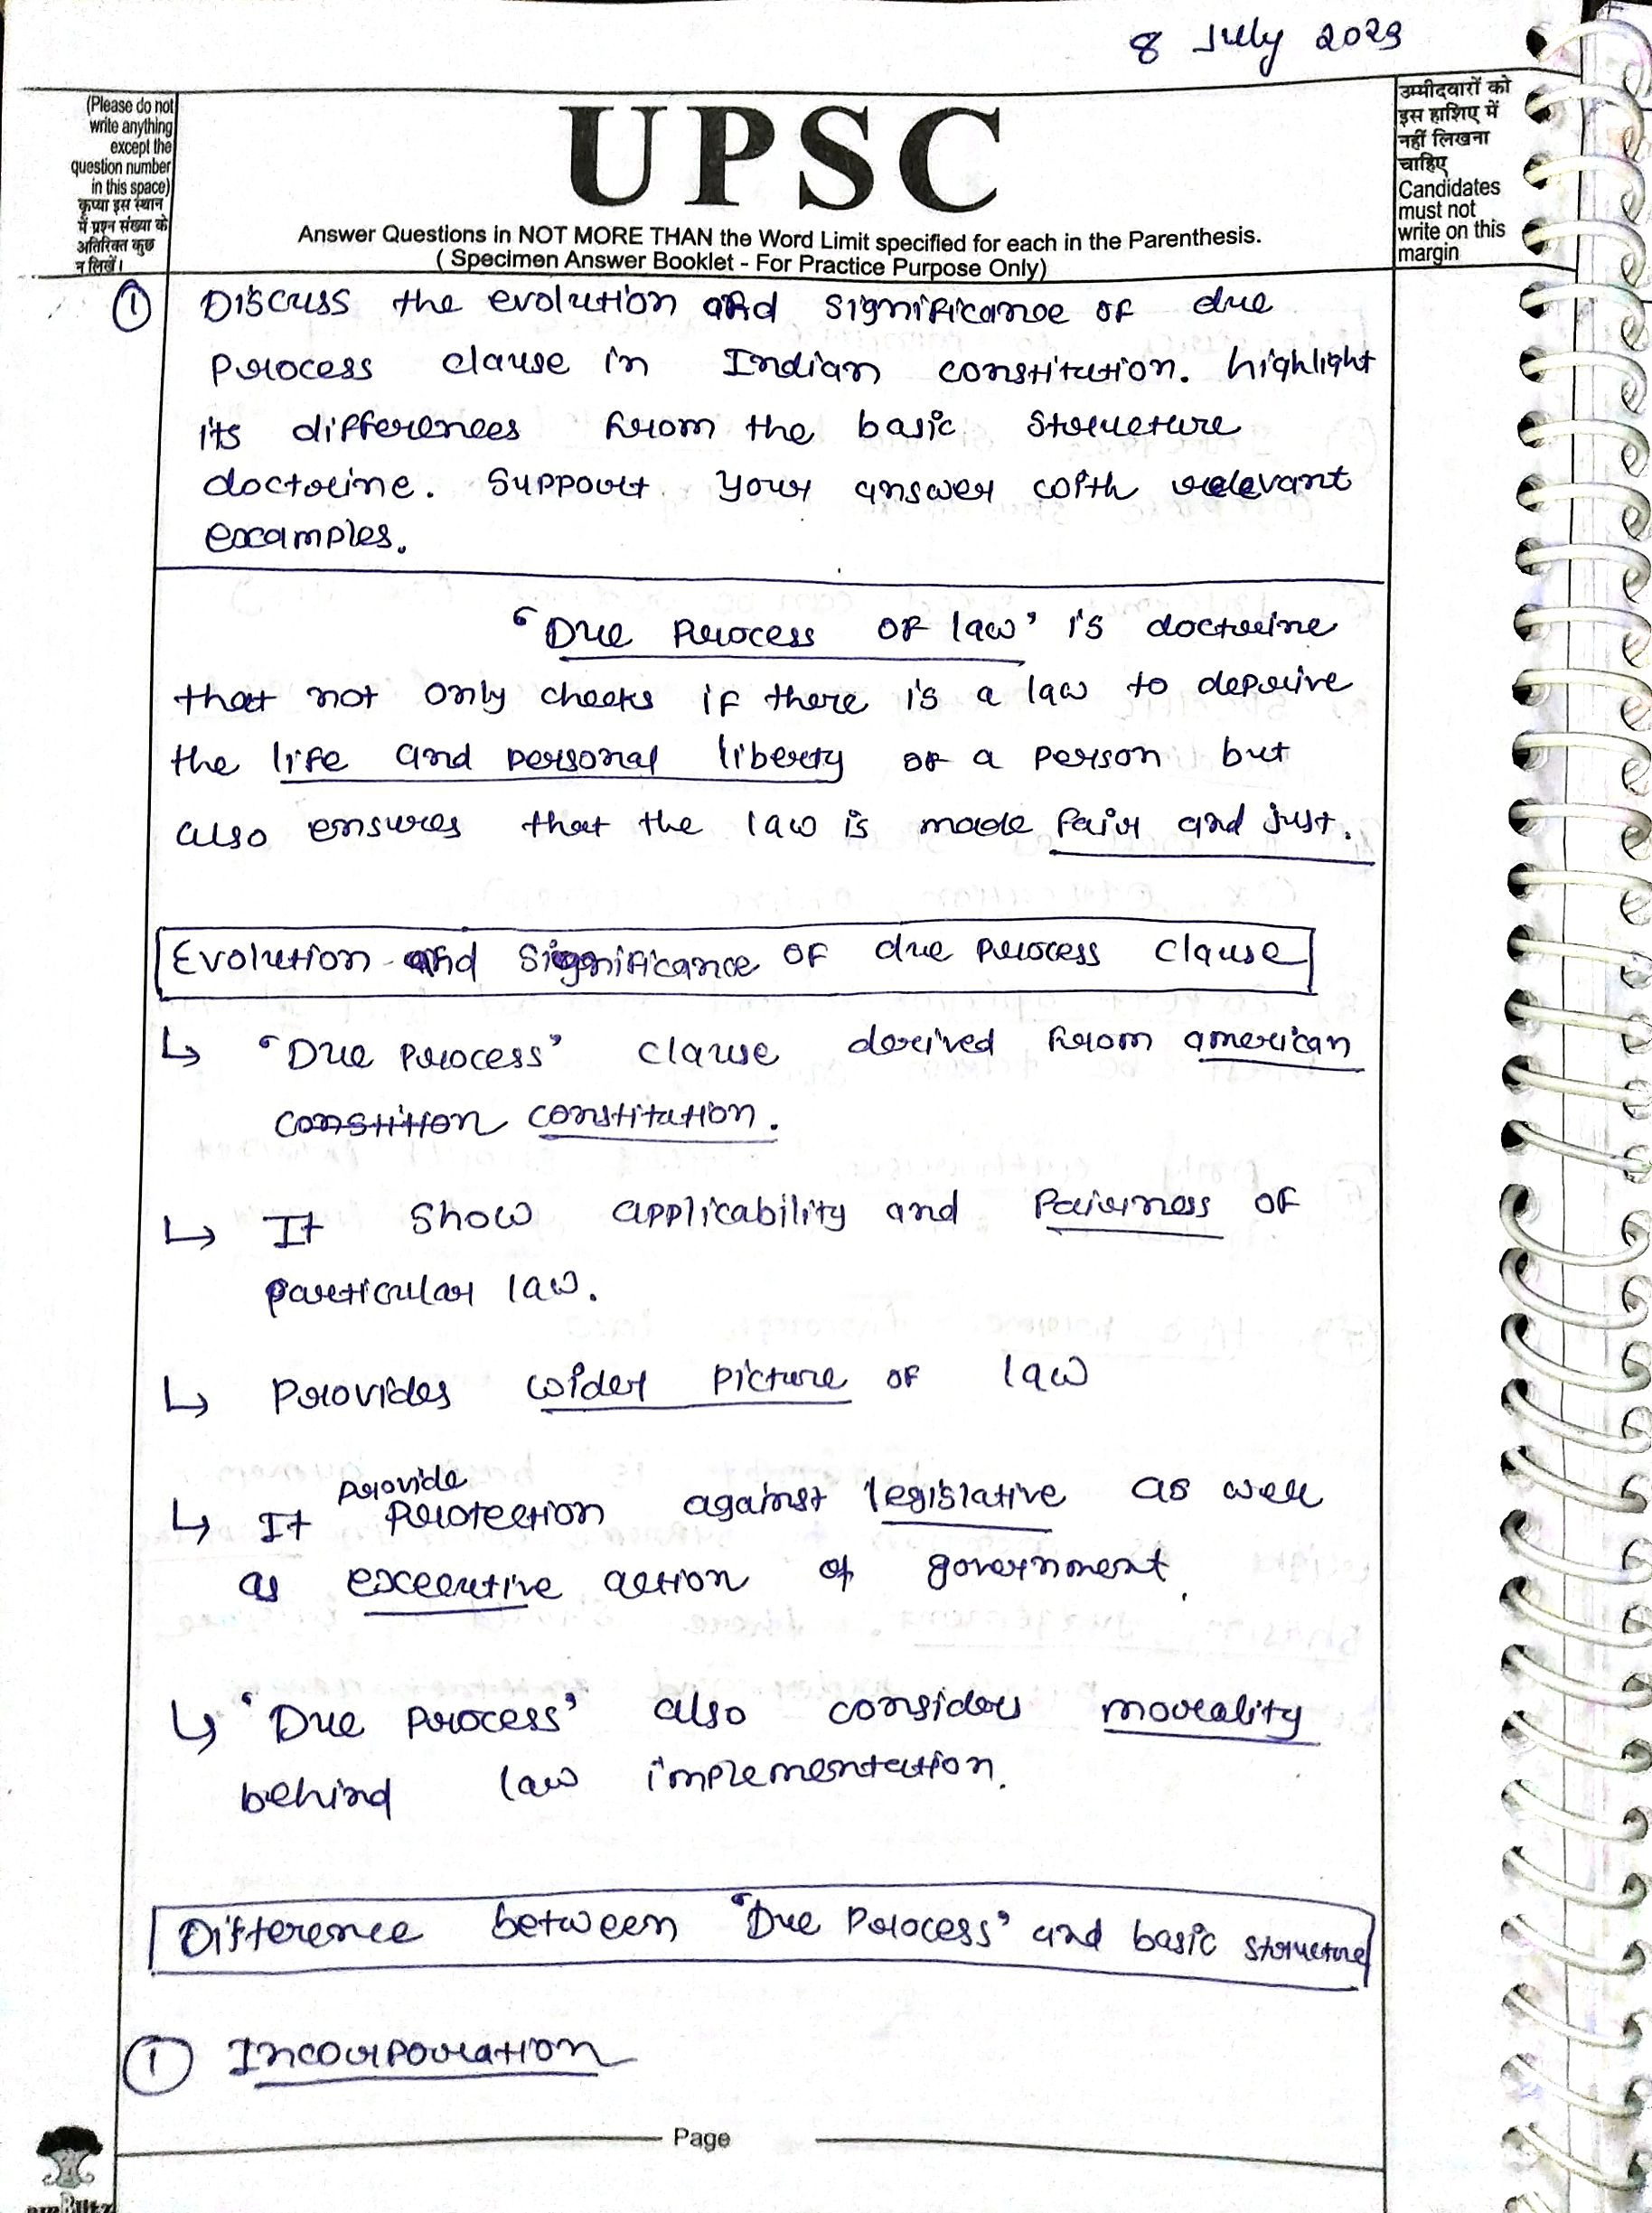 8 July 2023
(Please do not
write anything
except the
question number
in this space)
कृप्या इस स्थान
में प्रश्न संख्या के
अतिरिक्त कुछ
न लिखें।
UPSC
Answer Questions in NOT MORE THAN the Word Limit specified for each in the Parenthesis.
( Specimen Answer Booklet - For Practice Purpose Only)
उम्मीदवारों को
इस हाशिए में
नहीं लिखना
चाहिए
Candidates
must not
write on this
margin
① Discuss the evolution and significance of due
process clause in Indian constitution. highlight
its differences from the basic structure
doctrine. Support your answer with relevant
examples.
'Due process of law' is doctrine
that not only checks if there is a law to deprive
the life and personal liberty of a person but
also ensures that the law is made fair and just.
Evolution and Significance of due process clause
↳ 'Due process' clause derived from american
constition constitution.
↳ It show applicability and fairness of
particular law.
↳ Provides wider picture of law
provide
↳ It protection against legislative as well
as executive action of government.
↳ 'Due process' also considers morality
behind law implementation.
Difference between 'Due Process' and basic structure
① Incorporation
Page